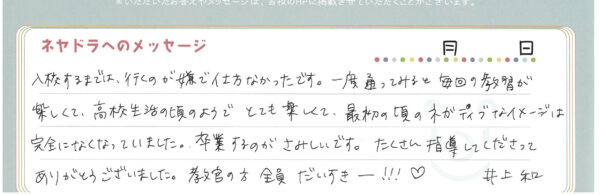 ※いただいたお答えやメッセージは、当校のHPに掲載させていただくことがございます。
ネヤドラへのメッセージ
月 日
入校するまでは、行くのが嫌で仕方なかったです。一度通ってみると毎回の教習が
楽しくて、高校生活の頃のようで とても楽しくて、最初の頃のネガティブなイメージは
完全になくなっていました。卒業するのがさみしいです。たくさん指導してくださって
ありがとうございました。教官の方 全員 だいすきー!!! ♡ 井上 和